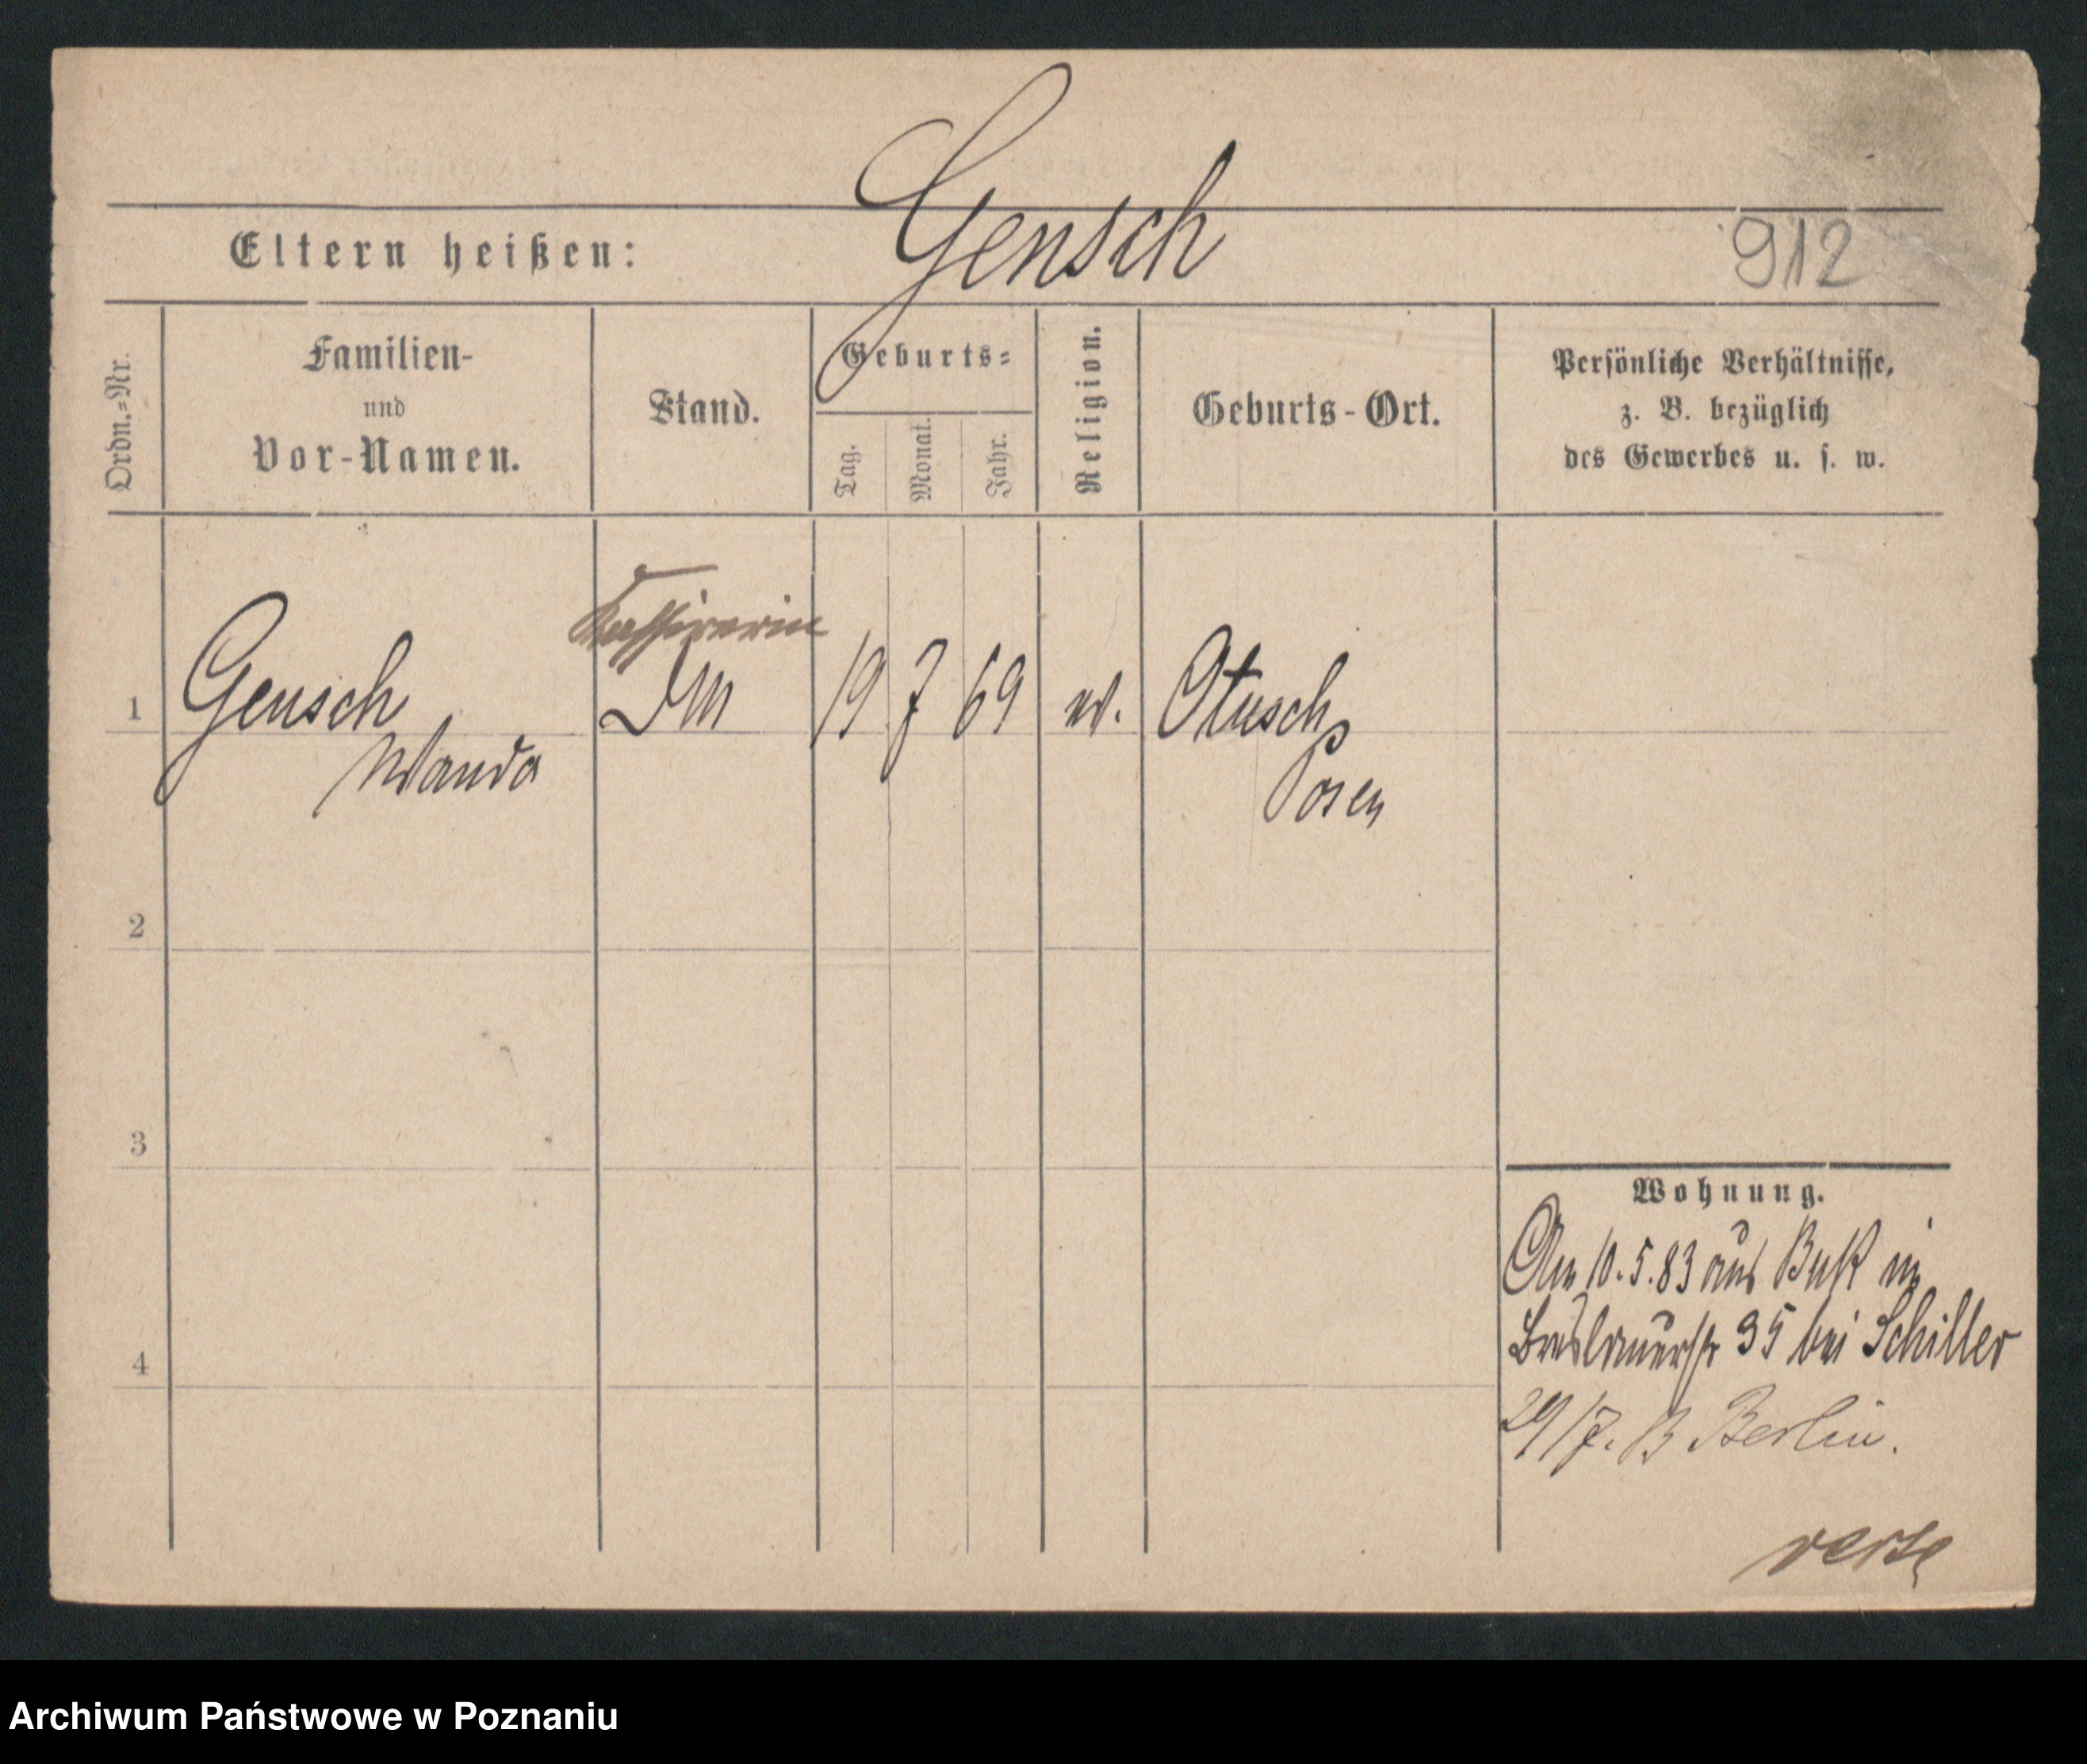 Gensch
Eltern heißen:
912
Ordn.=Nr.
Familien-
und
Vor-Namen.
Stand.
Geburts=
Tag.
Monat.
Jahr.
Religion.
Geburts-Ort.
Persönliche Verhältnisse,
z. B. bezüglich
des Gewerbes u. s. w.
Kassirerin
1 Gensch 19 7 69 Otusch
Wanda Posen
2
3
4
Wohnung.
Am 10.5.83 aus Buk in
Breslauerstr 35 bei Schiller
29/7. Berlin.
verte
Archiwum Państwowe w Poznaniu